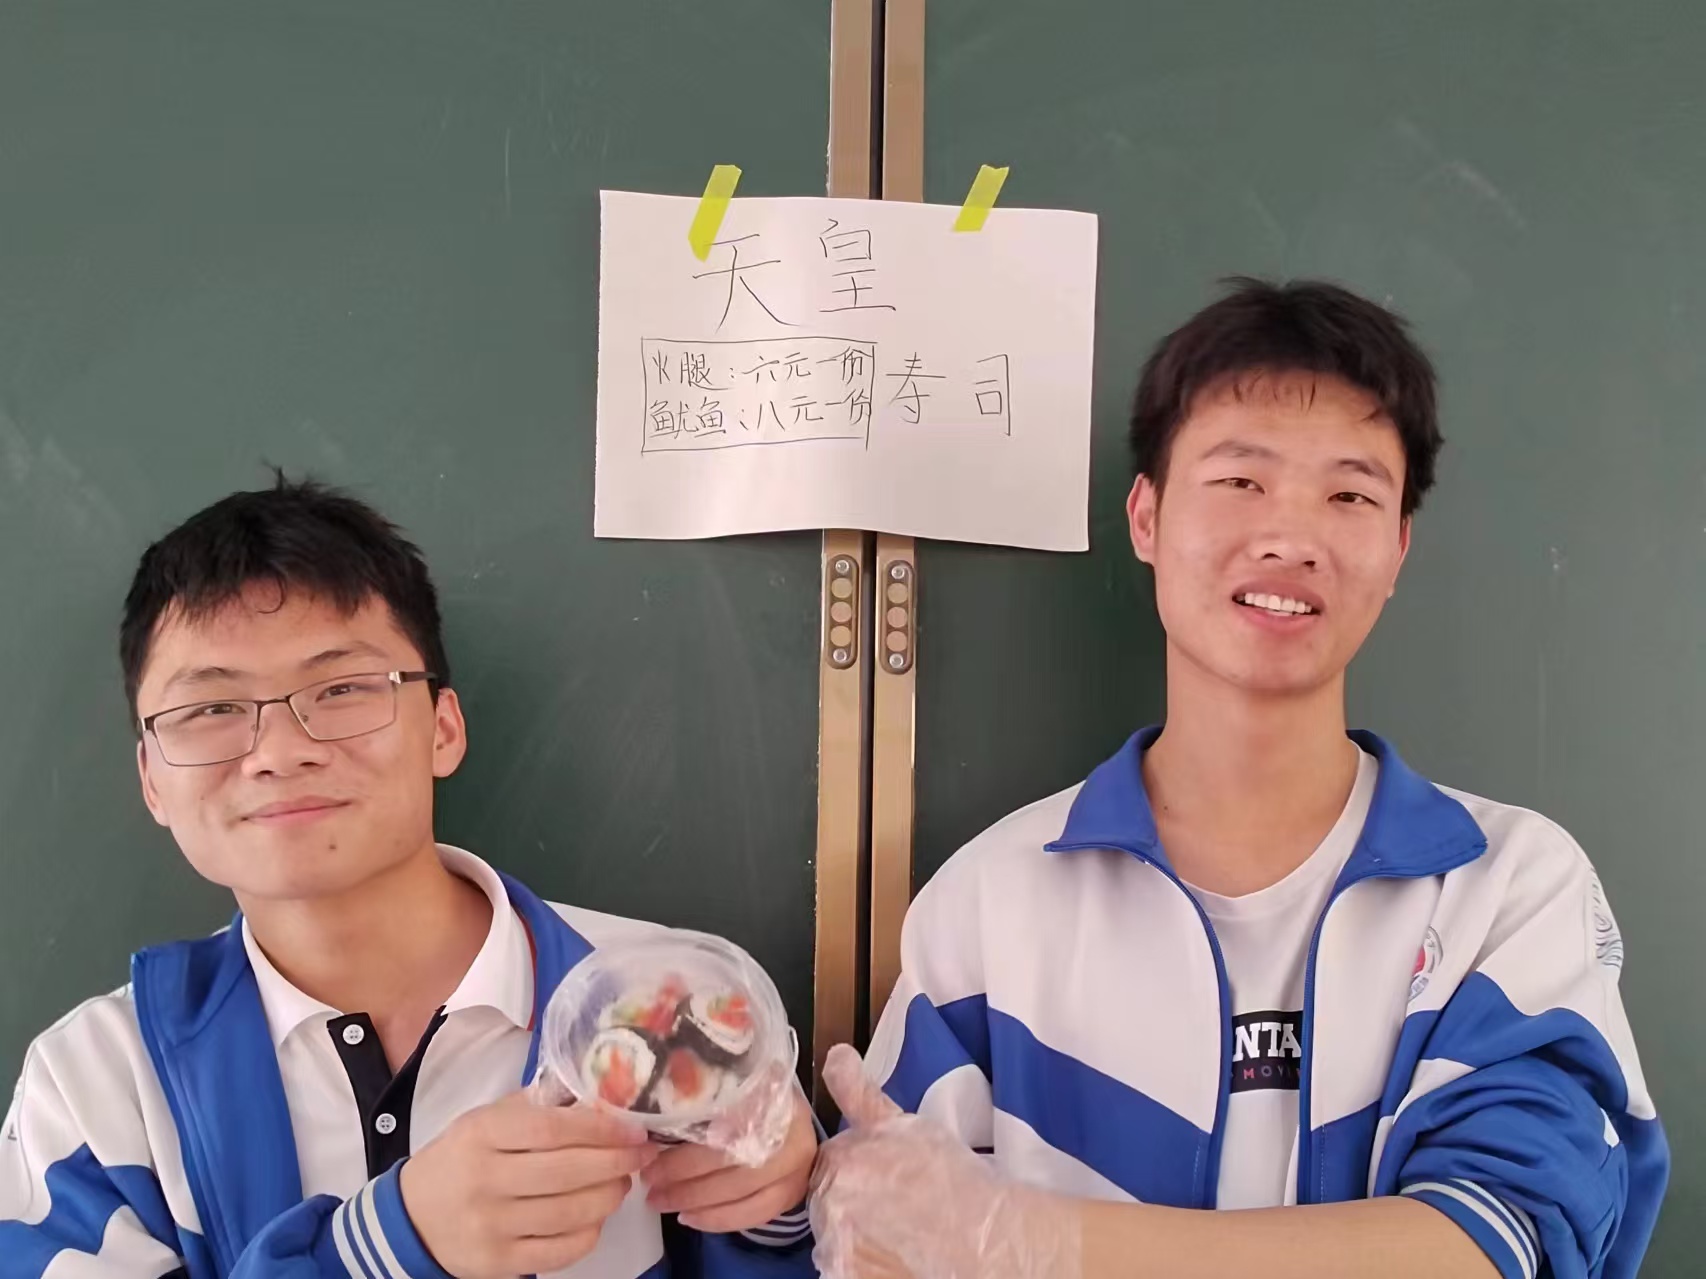 天皇
寿司
火腿：六元一份
鱿鱼：八元一份
NTA
MOVI